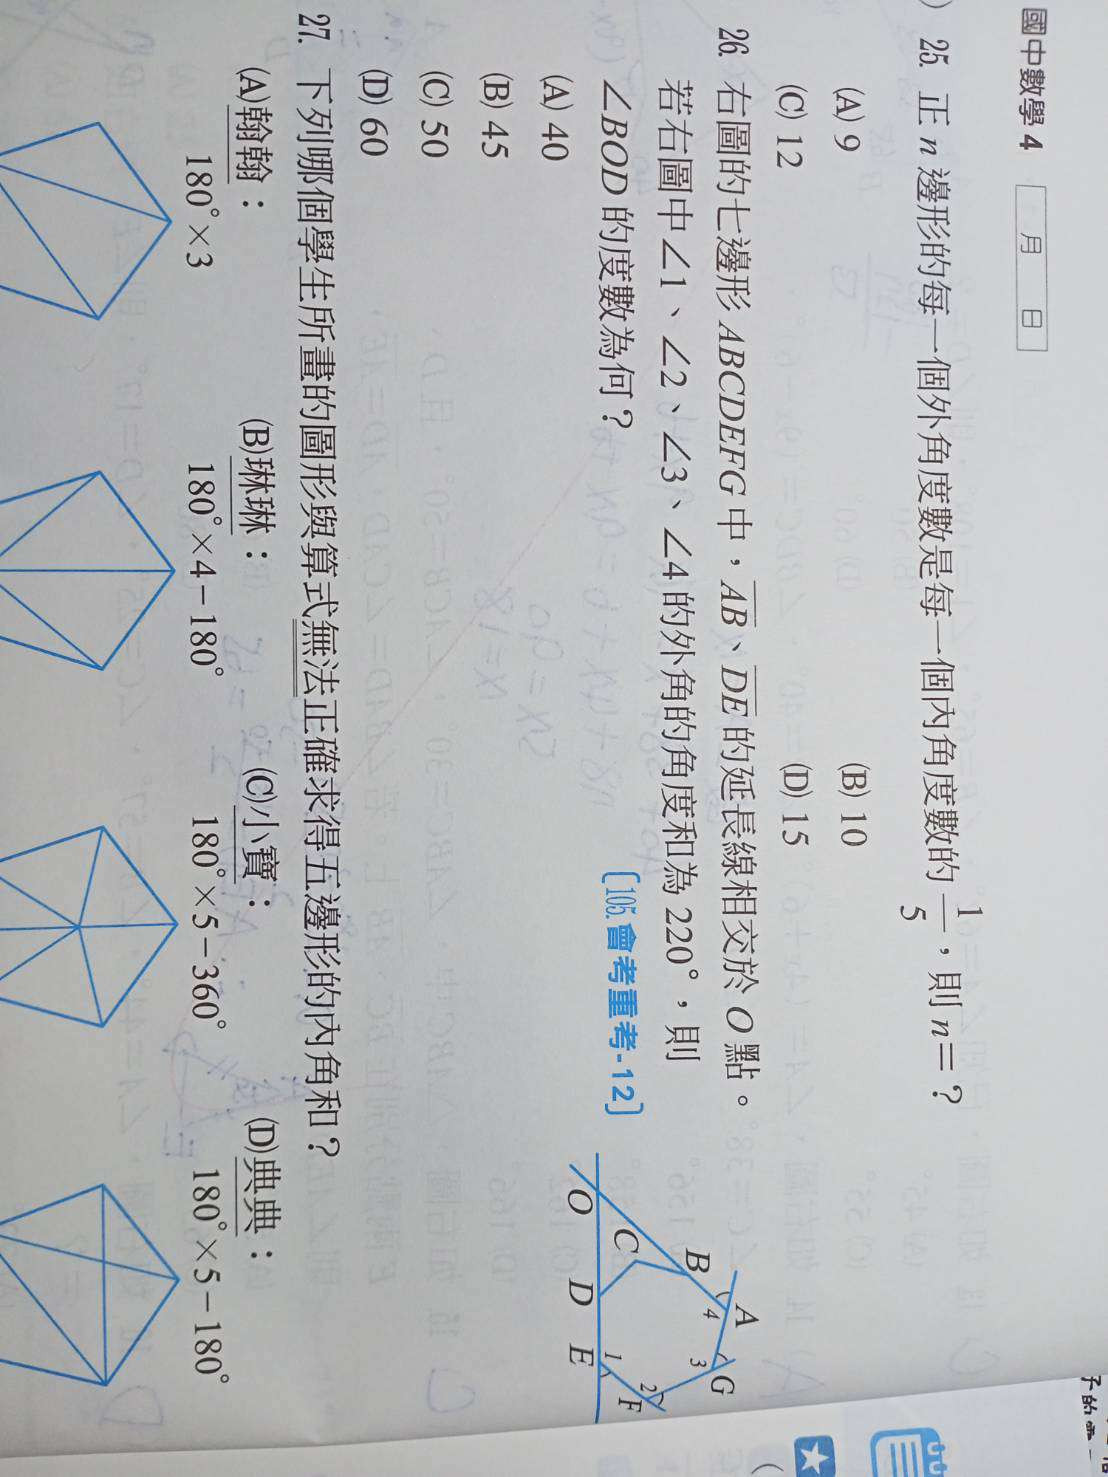 國中數學 4 月 日
25. 正 n 邊形的每一個外角度數是每一個內角度數的 1/5，則 n=？
(A) 9 (B) 10
(C) 12 (D) 15
26. 右圖的七邊形 ABCDEFG 中，AB、DE 的延長線相交於 O 點。
若右圖中∠1、∠2、∠3、∠4 的外角的角度和為 220°，則
∠BOD 的度數為何？ 〔105.會考重考-12〕
(A) 40
(B) 45
(C) 50
(D) 60
A
B
4
3
G
C
2
F
1
O D E
27. 下列哪個學生所畫的圖形與算式無法正確求得五邊形的內角和？
(A)翰翰： (B)琳琳： (C)小寶： (D)典典：
180°×3 180°×4－180° 180°×5－360° 180°×5－180°